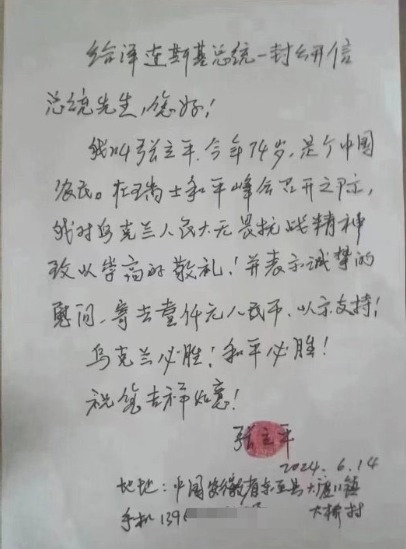 给泽连斯基总统一封公开信
总统先生,您好!
我叫张立平.今年74岁,是个中国
农民。在瑞士和平峰会召开之际,
我对乌克兰人民大无畏抗战精神
致以崇高的敬礼!并表示诚挚的
慰问、寄去壹仟元人民币、以示支持!
乌克兰必胜!和平必胜!
祝您吉祥如意!
张立平
2024.6.14
地址:中国安徽省东至县大渡口镇
大桥村
手机139